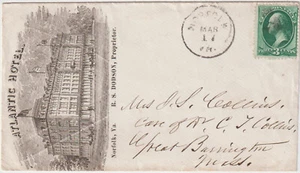 ATLANTIC HOTEL,
Norfolk, Va.
R. S. DODSON, Proprietor.
NORFOLK
MAR
17
Mrs J. S. Collins.
Care of Mr C. T. Collins
Great Barrington
Mass.